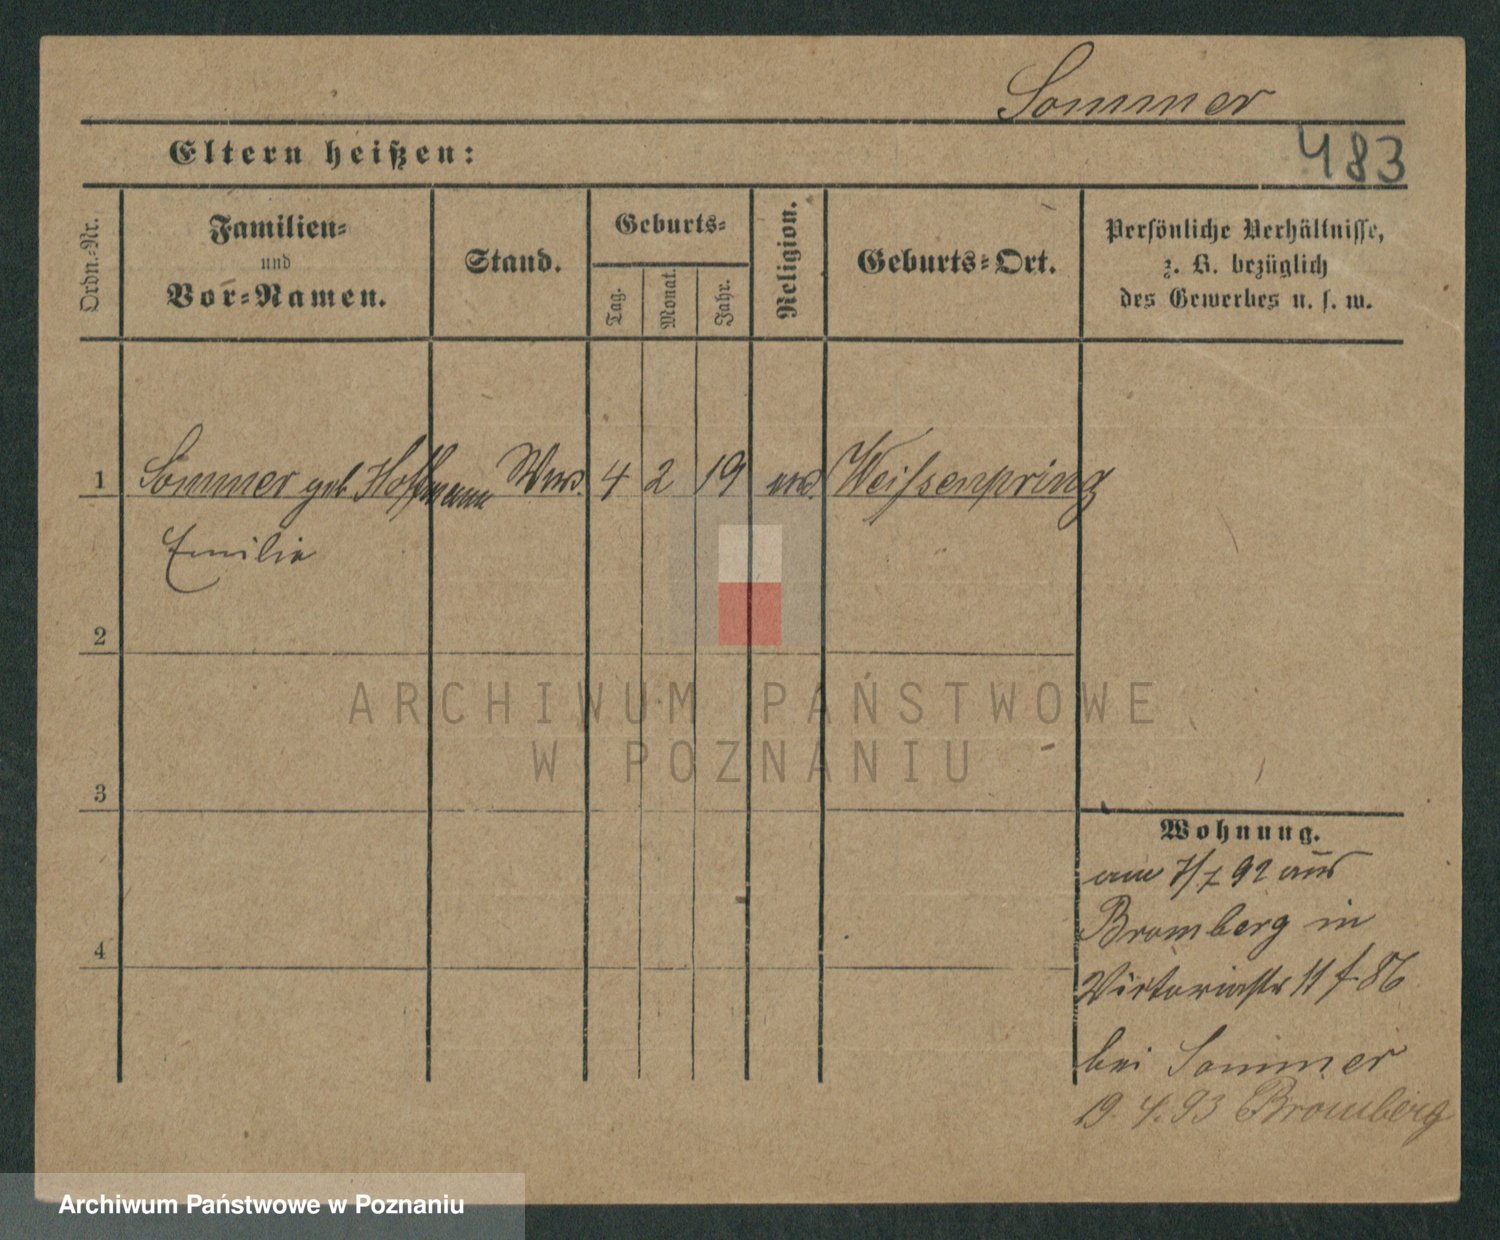 Sommer
Eltern heißen:
483
Ordn.-Nr.
Familien-
und
Vor-Namen.
Stand.
Geburts-
Tag.
Monat.
Jahr.
Religion.
Geburts-Ort.
Persönliche Verhältnisse,
z. B. bezüglich
des Gewerbes u. s. w.
1 Sommer geb Hoffmann Ww. 4 2 19 Weißenspring
Emilie
2
ARCHIWUM PAŃSTWOWE
W POZNANIU
3
Wohnung.
am 7/7 92 aus
Bromberg in
4
Victoriastr 11 f. 86
bei Sommer
19. 4. 93 Bromberg
Archiwum Państwowe w Poznaniu